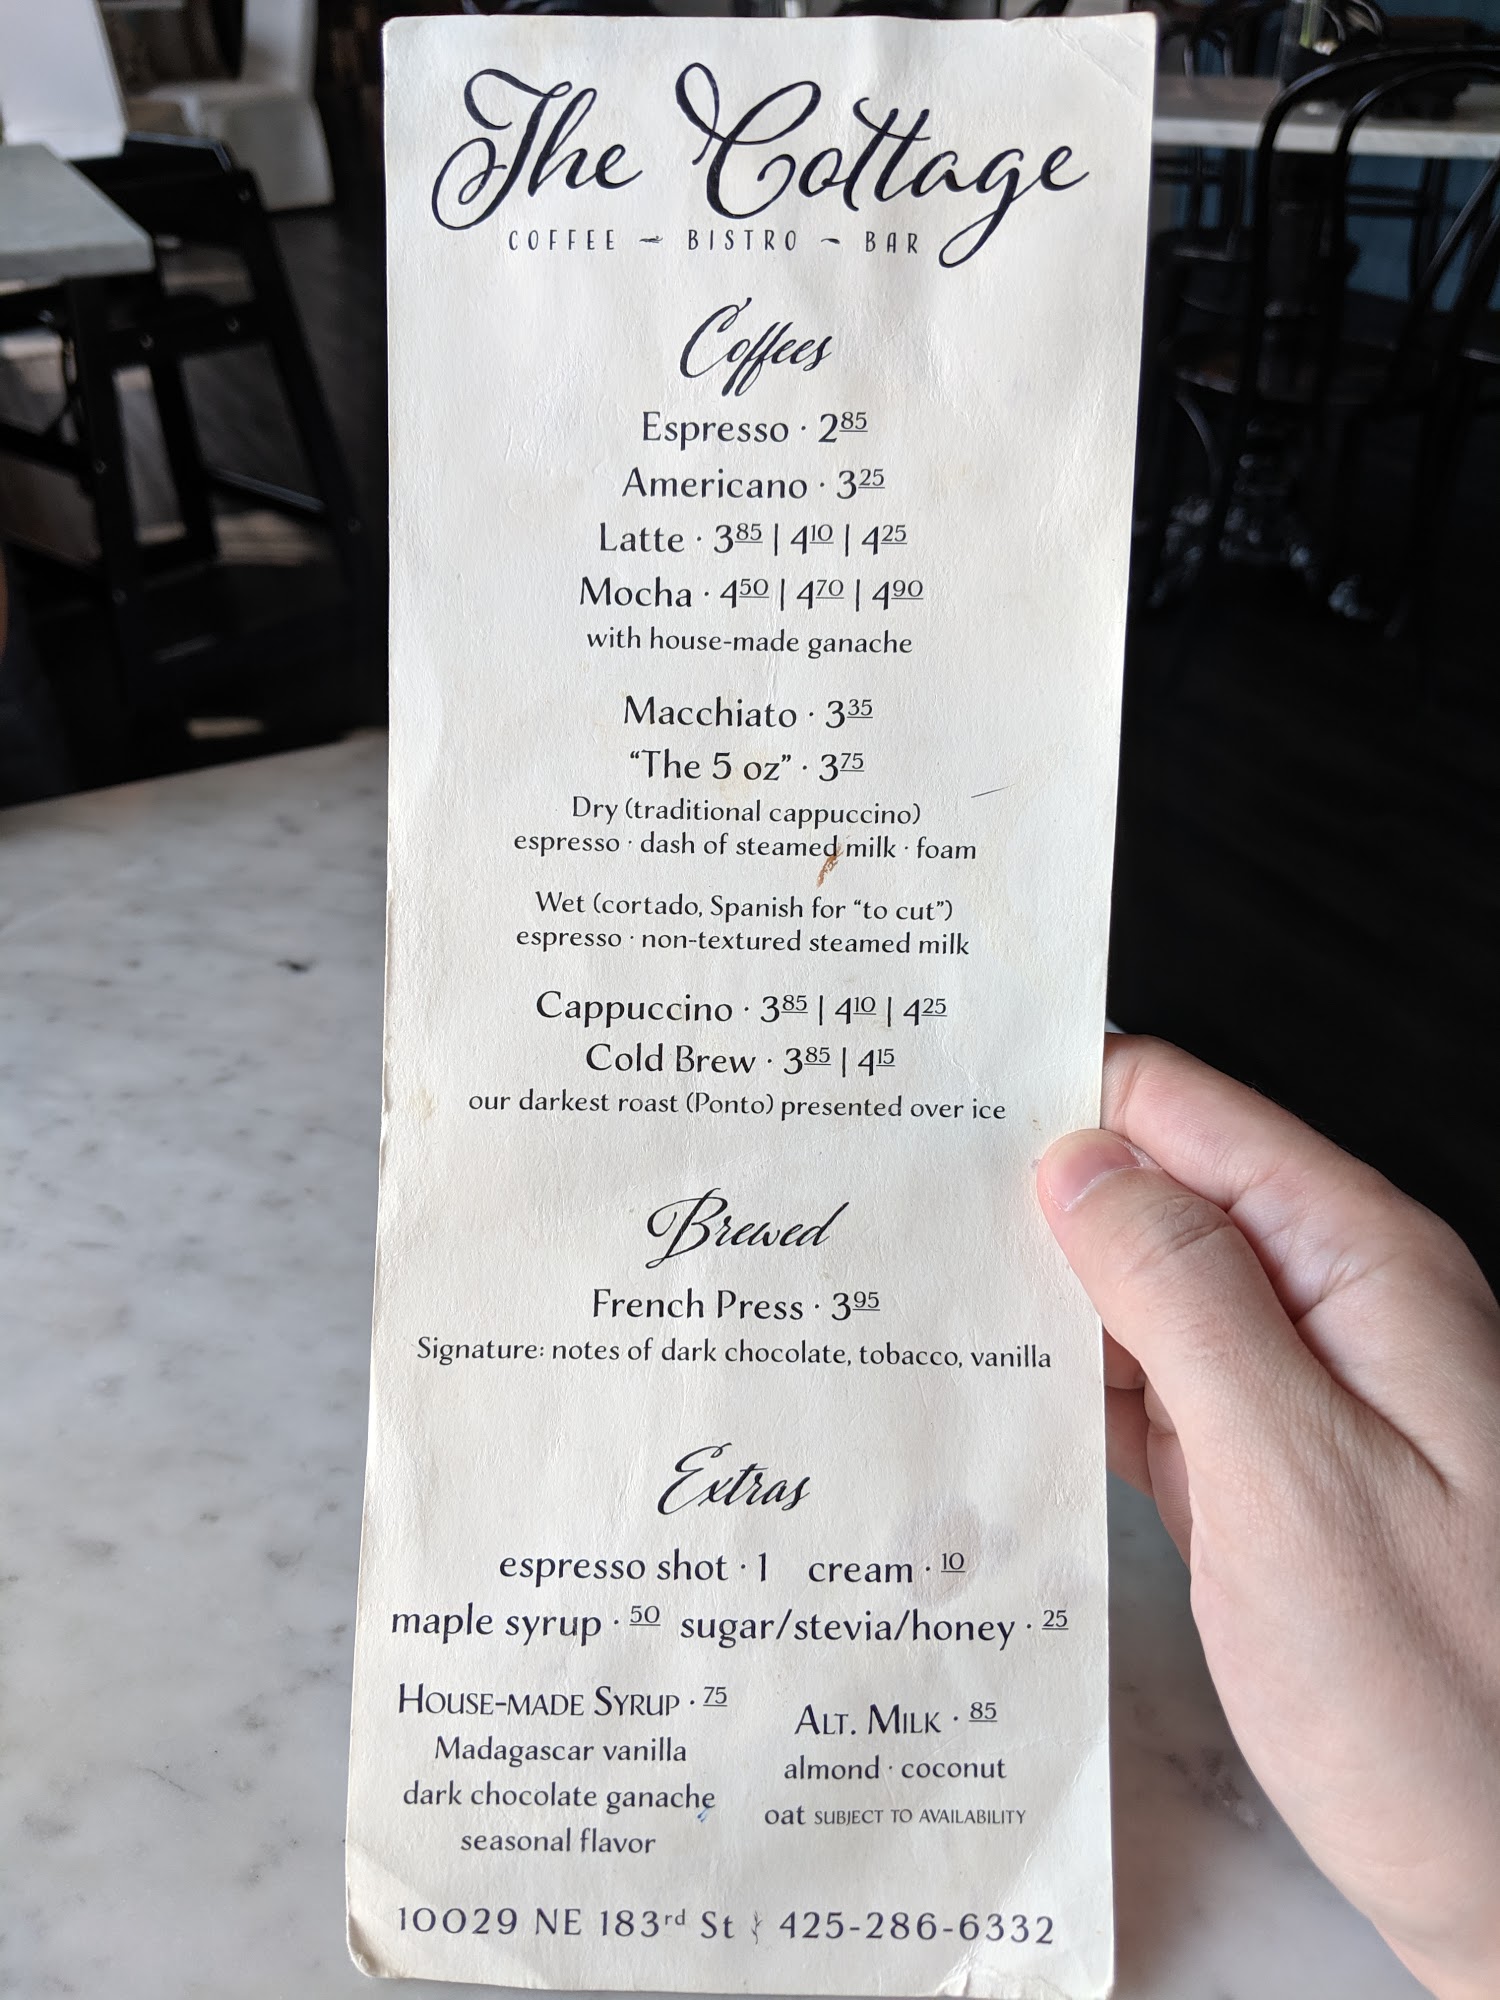 The Cottage
COFFEE ~ BISTRO ~ BAR
Coffees
Espresso · 285
Americano · 325
Latte · 385 | 410 | 425
Mocha · 450 | 470 | 490
with house-made ganache
Macchiato · 335
“The 5 oz” · 375
Dry (traditional cappuccino)
espresso · dash of steamed milk · foam
Wet (cortado, Spanish for “to cut”)
espresso · non-textured steamed milk
Cappuccino · 385 | 410 | 425
Cold Brew · 385 | 415
our darkest roast (Ponto) presented over ice
Brewed
French Press · 395
Signature: notes of dark chocolate, tobacco, vanilla
Extras
espresso shot · 1 cream · 10
maple syrup · 50 sugar/stevia/honey · 25
HOUSE-MADE SYRUP · 75
Madagascar vanilla
dark chocolate ganache
seasonal flavor
ALT. MILK · 85
almond · coconut
oat SUBJECT TO AVAILABILITY
10029 NE 183rd St 425-286-6332